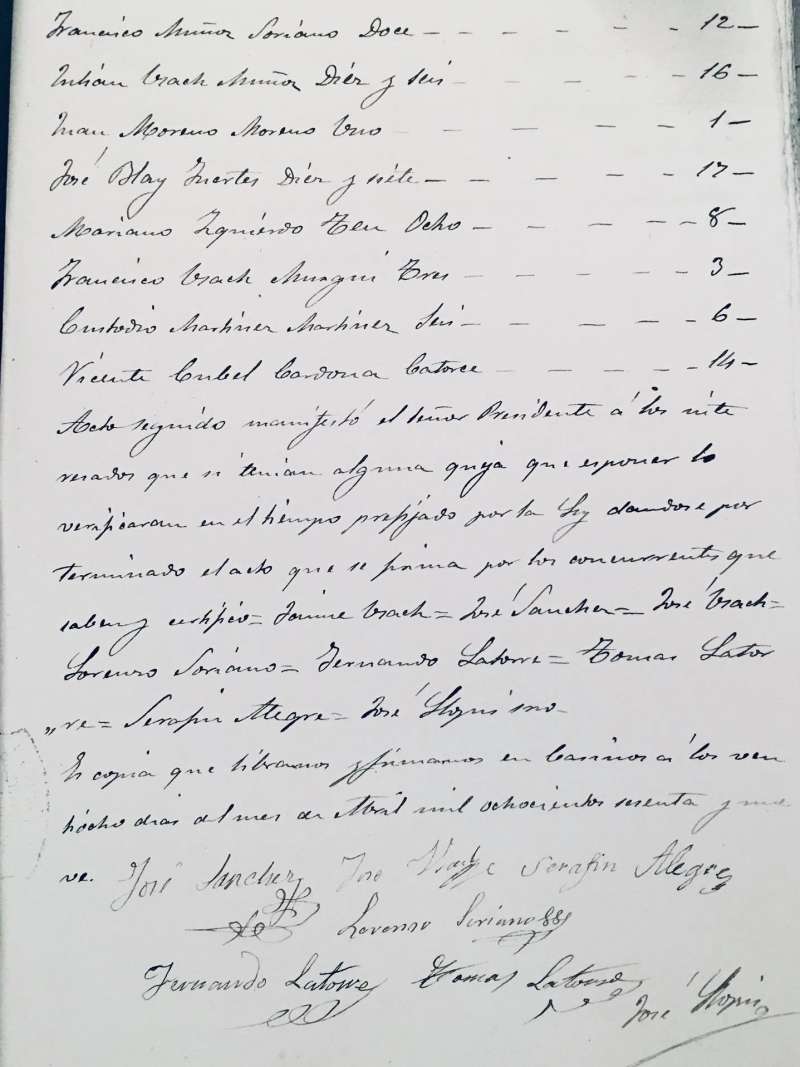 Francisco Muñoz Soriano Doce - - - - - - 12 -
Julián Usach Muñoz Diéz y seis - - - - - - 16 -
Juan Moreno Moreno Uno - - - - - - 1 -
José Blay Fuertes Diéz y siéte - - - - - 17 -
Mariano Izquiérdo Ten Ocho - - - - - - 8 -
Francisco Usach Murgui Tres - - - - - - 3 -
Custodio Martinez Martinez Seis - - - - - - 6 -
Vicente Cubel Cardona Catorce - - - - - - 14 -
Acto seguido manifestó el señor Presidente á los inte
resados que si tenian alguna queja que esponer lo
verificaran en el tiempo prefijado por la Ley dandose por
terminado el acto que se firma por los concurrentes que
saben y certifico = Jaime Usach = José Sanchez = José Usach =
Lorenzo Soriano = Fernando Latorre = Tomas Lator
„re = Serafin Alegre = José Llopis srio -
Es copia que libramos y firmamos en Casinos á los ven
tiocho dias del mes de Abril mil ochocientos sesenta y nue
ve. José Sanchez José Serafin Alegre
Lorenso Soriano
Fernando Latorre Tomas Latorre
José Llopis